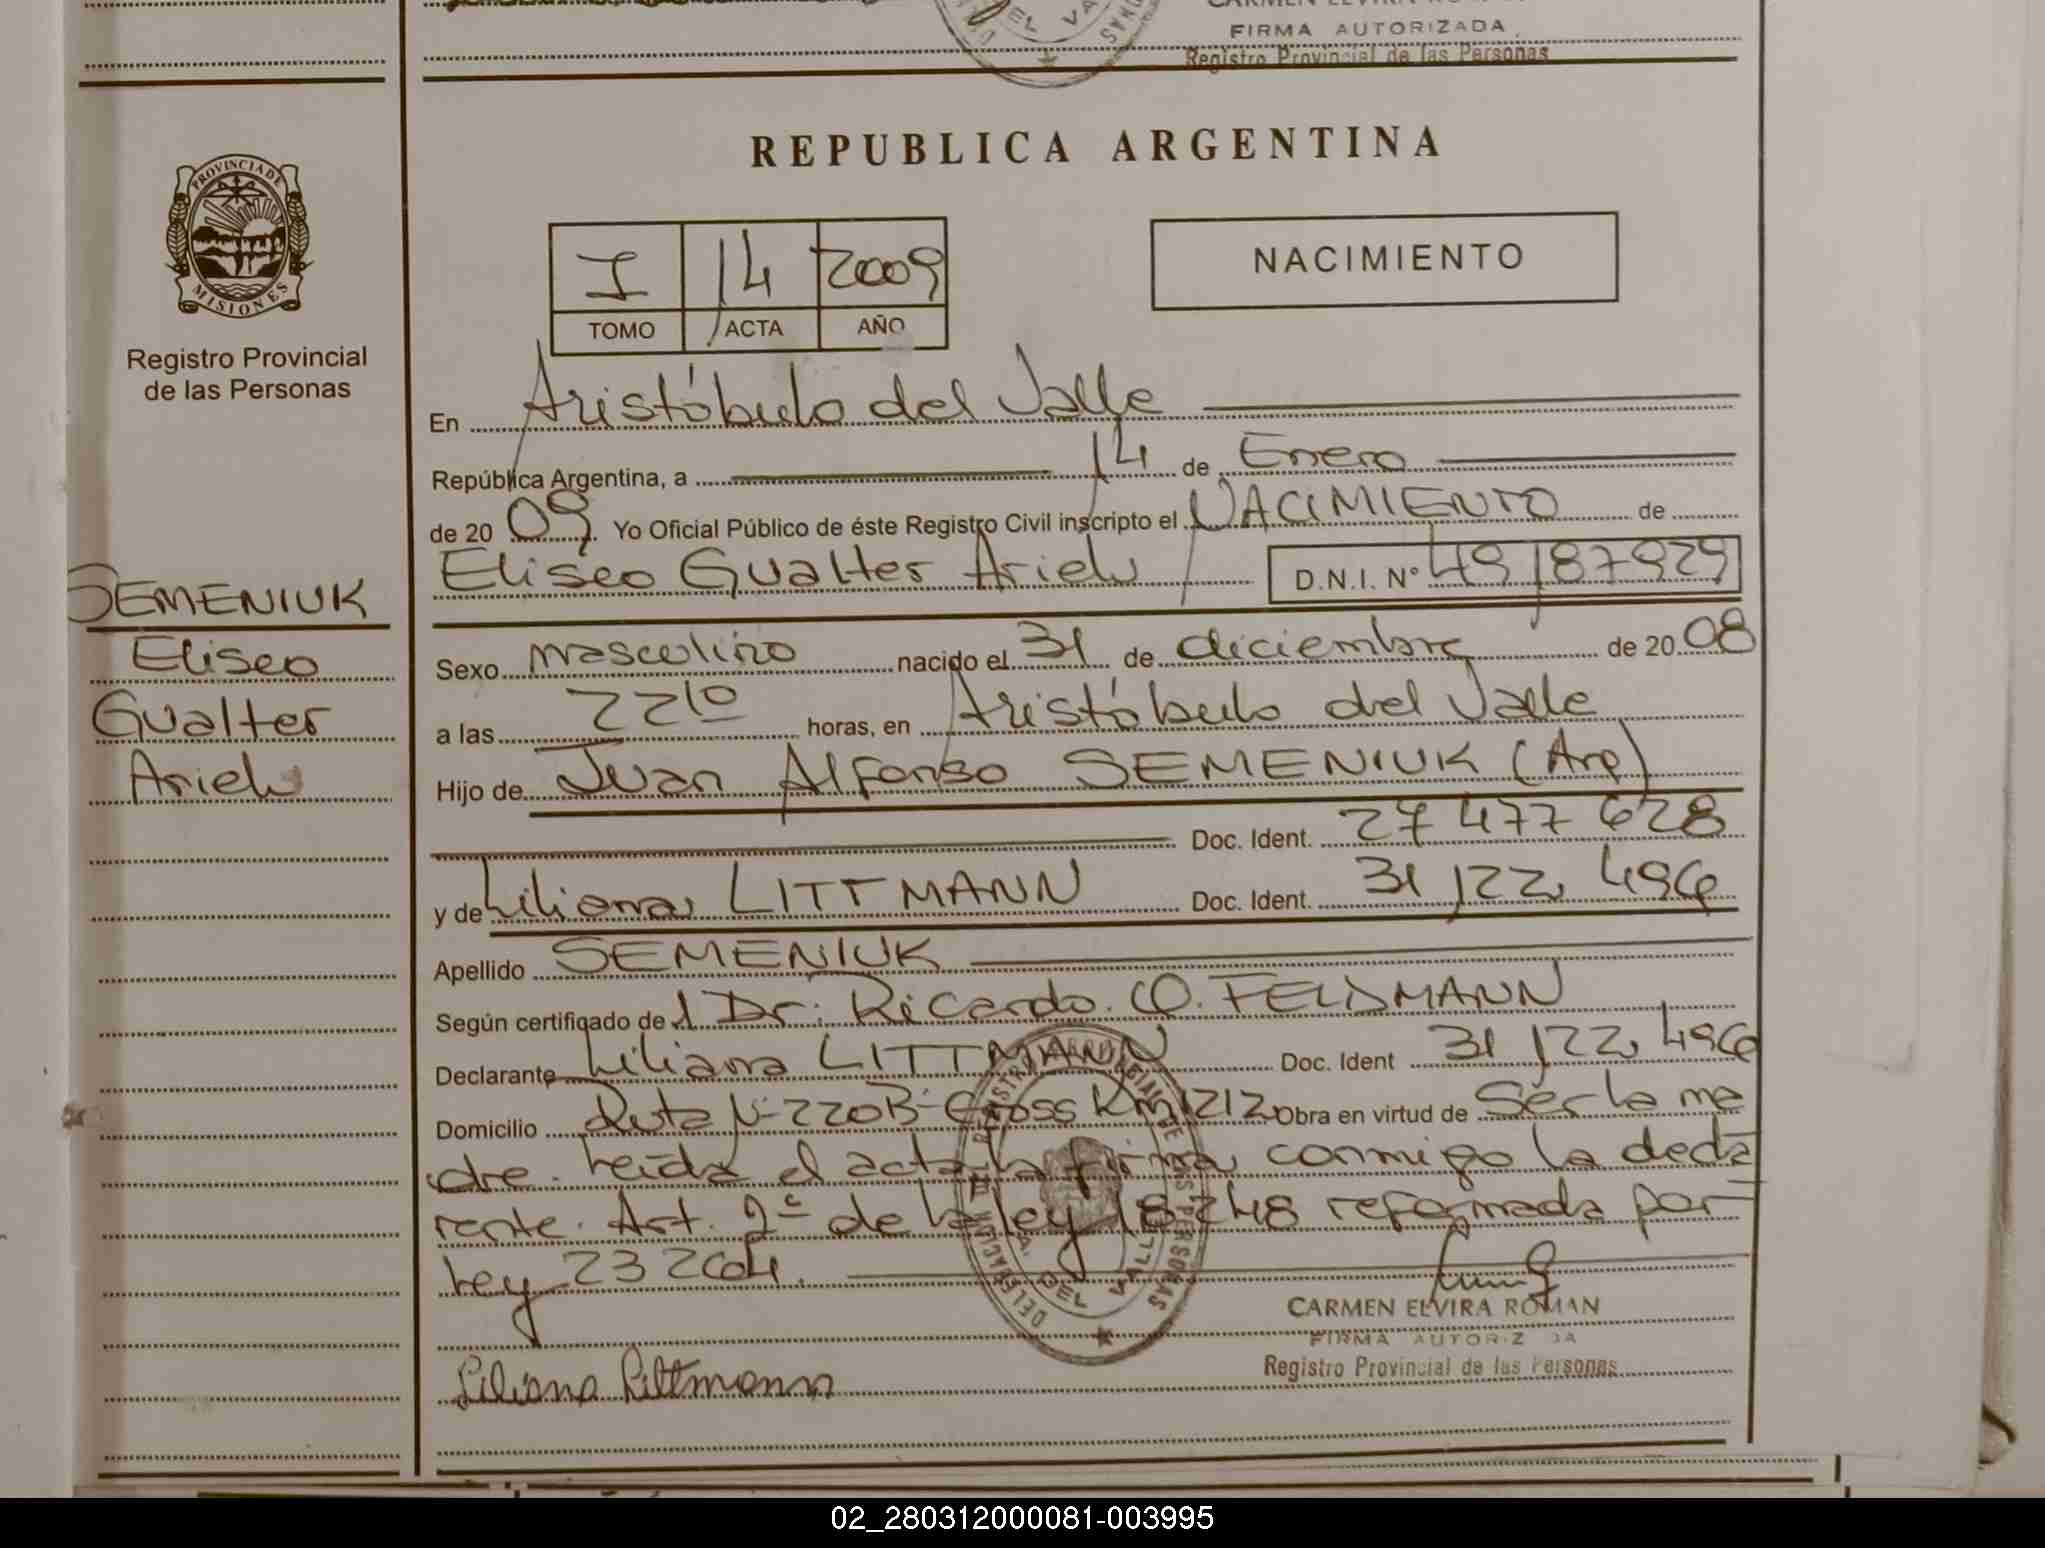 FIRMA AUTORIZADA
Registro Provincial de las Personas
REPUBLICA ARGENTINA
PROVINCIA DE
MISIONES
Registro Provincial
de las Personas
I 14 2009
TOMO ACTA AÑO
NACIMIENTO
En Aristóbulo del Valle
República Argentina, a 14 de Enero
de 2009 Yo Oficial Público de éste Registro Civil inscripto el NACIMIENTO de
Eliseo Gualter Ariel D.N.I. Nº 49187929
SEMENIUK
Eliseo
Gualter
Ariel
Sexo masculino nacido el 31 de diciembre de 2008
a las 22 10 horas, en Aristóbulo del Valle
Hijo de Juan Alfonso SEMENIUK (Arg)
Doc. Ident. 27 477 628
y de Liliana LITTMANN Doc. Ident. 31 122 496
Apellido SEMENIUK
Según certificado de l Dr: Ricardo. O. FELDMANN
Declarante Liliana LITTMANN Doc. Ident 31 122 496
Domicilio Ruta Nº 220B- Km 1212 Obra en virtud de Ser la ma
dre. Leída el acta la firma conmigo la decla
rante. Art. 2º de la ley 18248 reformada por
Ley 23264.
CARMEN ELVIRA ROMAN
FIRMA AUTORIZ DA
Registro Provincial de las Personas
Liliana Littmann
02_280312000081-003995